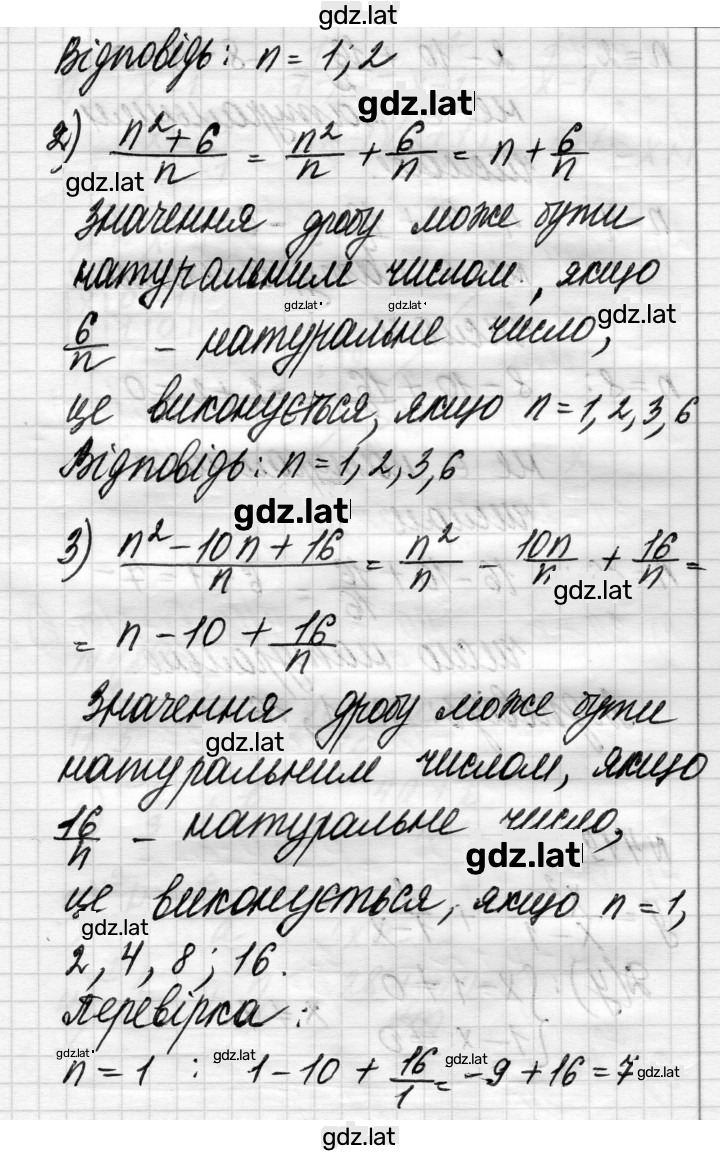 gdz.lat
Відповідь: n = 1; 2
gdz.lat
2) (n² + 6)/n = n²/n + 6/n = n + 6/n
gdz.lat
Значення дробу може бути
натуральним числом, якщо
gdz.lat gdz.lat gdz.lat
6/n – натуральне число,
це виконується, якщо n = 1, 2, 3, 6
Відповідь: n = 1, 2, 3, 6
gdz.lat
3) (n² – 10n + 16)/n = n²/n – 10n/n + 16/n =
gdz.lat
= n – 10 + 16/n
Значення дробу може бути
gdz.lat
натуральним числом, якщо
16/n – натуральне число,
gdz.lat
це виконується, якщо n = 1,
gdz.lat
2, 4, 8; 16.
Перевірка:
gdz.lat gdz.lat gdz.lat gdz.lat
n = 1 : 1 – 10 + 16/1 = –9 + 16 = 7
gdz.lat